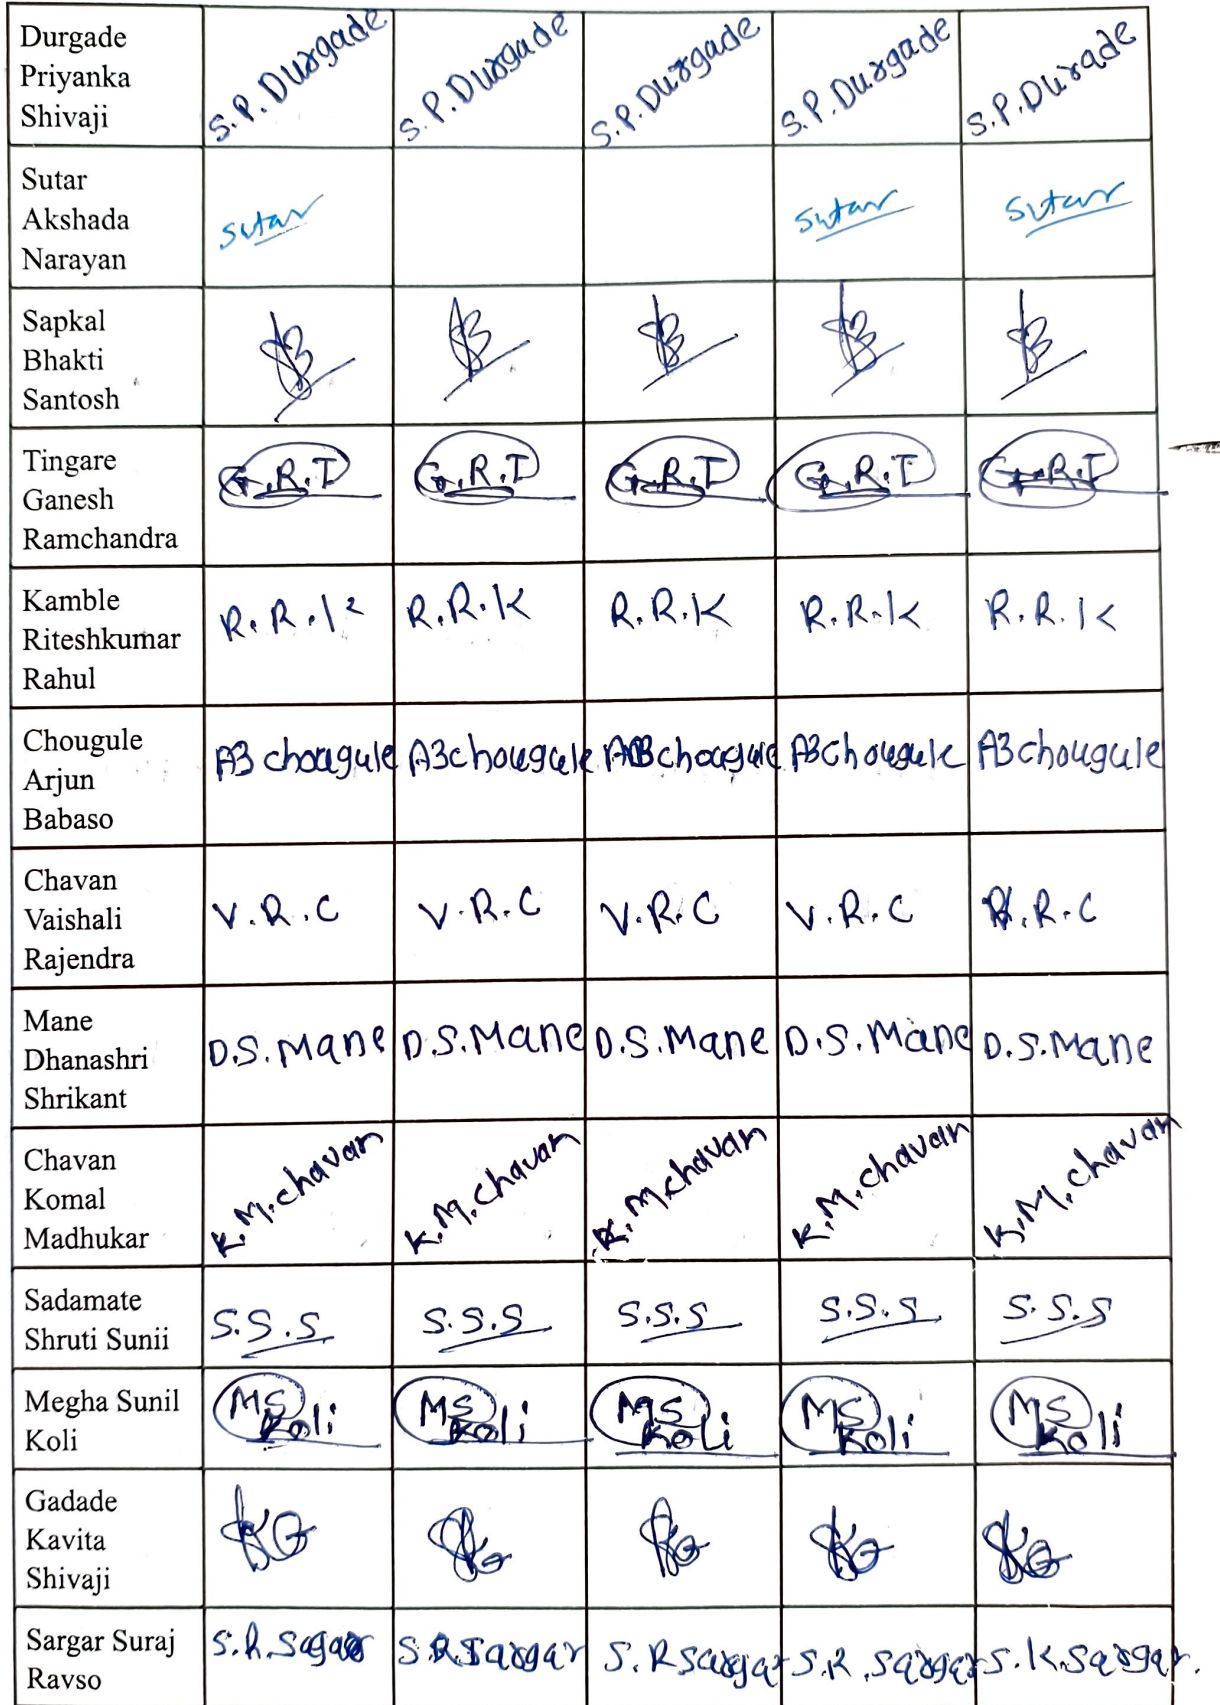 Durgade
Priyanka
Shivaji
S.P.Durgade S.P.Durgade S.P.Durgade S.P.Durgade S.P.Durade
Sutar
Akshada
Narayan
Sutar Sutar Sutar
Sapkal
Bhakti
Santosh
Tingare
Ganesh
Ramchandra
G.R.T G.R.T G.R.T G.R.T G.R.T
Kamble
Riteshkumar
Rahul
R.R.K R.R.K R.R.K R.R.K R.R.K
Chougule
Arjun
Babaso
AB chougule ABchougule ABchougule ABchougule ABchougule
Chavan
Vaishali
Rajendra
V.R.C V.R.C V.R.C V.R.C V.R.C
Mane
Dhanashri
Shrikant
D.S.Mane D.S.Mane D.S.Mane D.S.Mane D.S.Mane
Chavan
Komal
Madhukar
K.M.chavan K.M.chavan K.M.chavan K.M.chavan K.M.chavan
Sadamate
Shruti Sunii
S.S.S S.S.S S.S.S S.S.S S.S.S
Megha Sunil
Koli
MS MS MS MS MS
Koli Koli Koli Koli Koli
Gadade
Kavita
Shivaji
Sargar Suraj
Ravso
S.R.Sagar S.R.Sargar S.R Sargar S.R.Sargar S.R.Sargar.